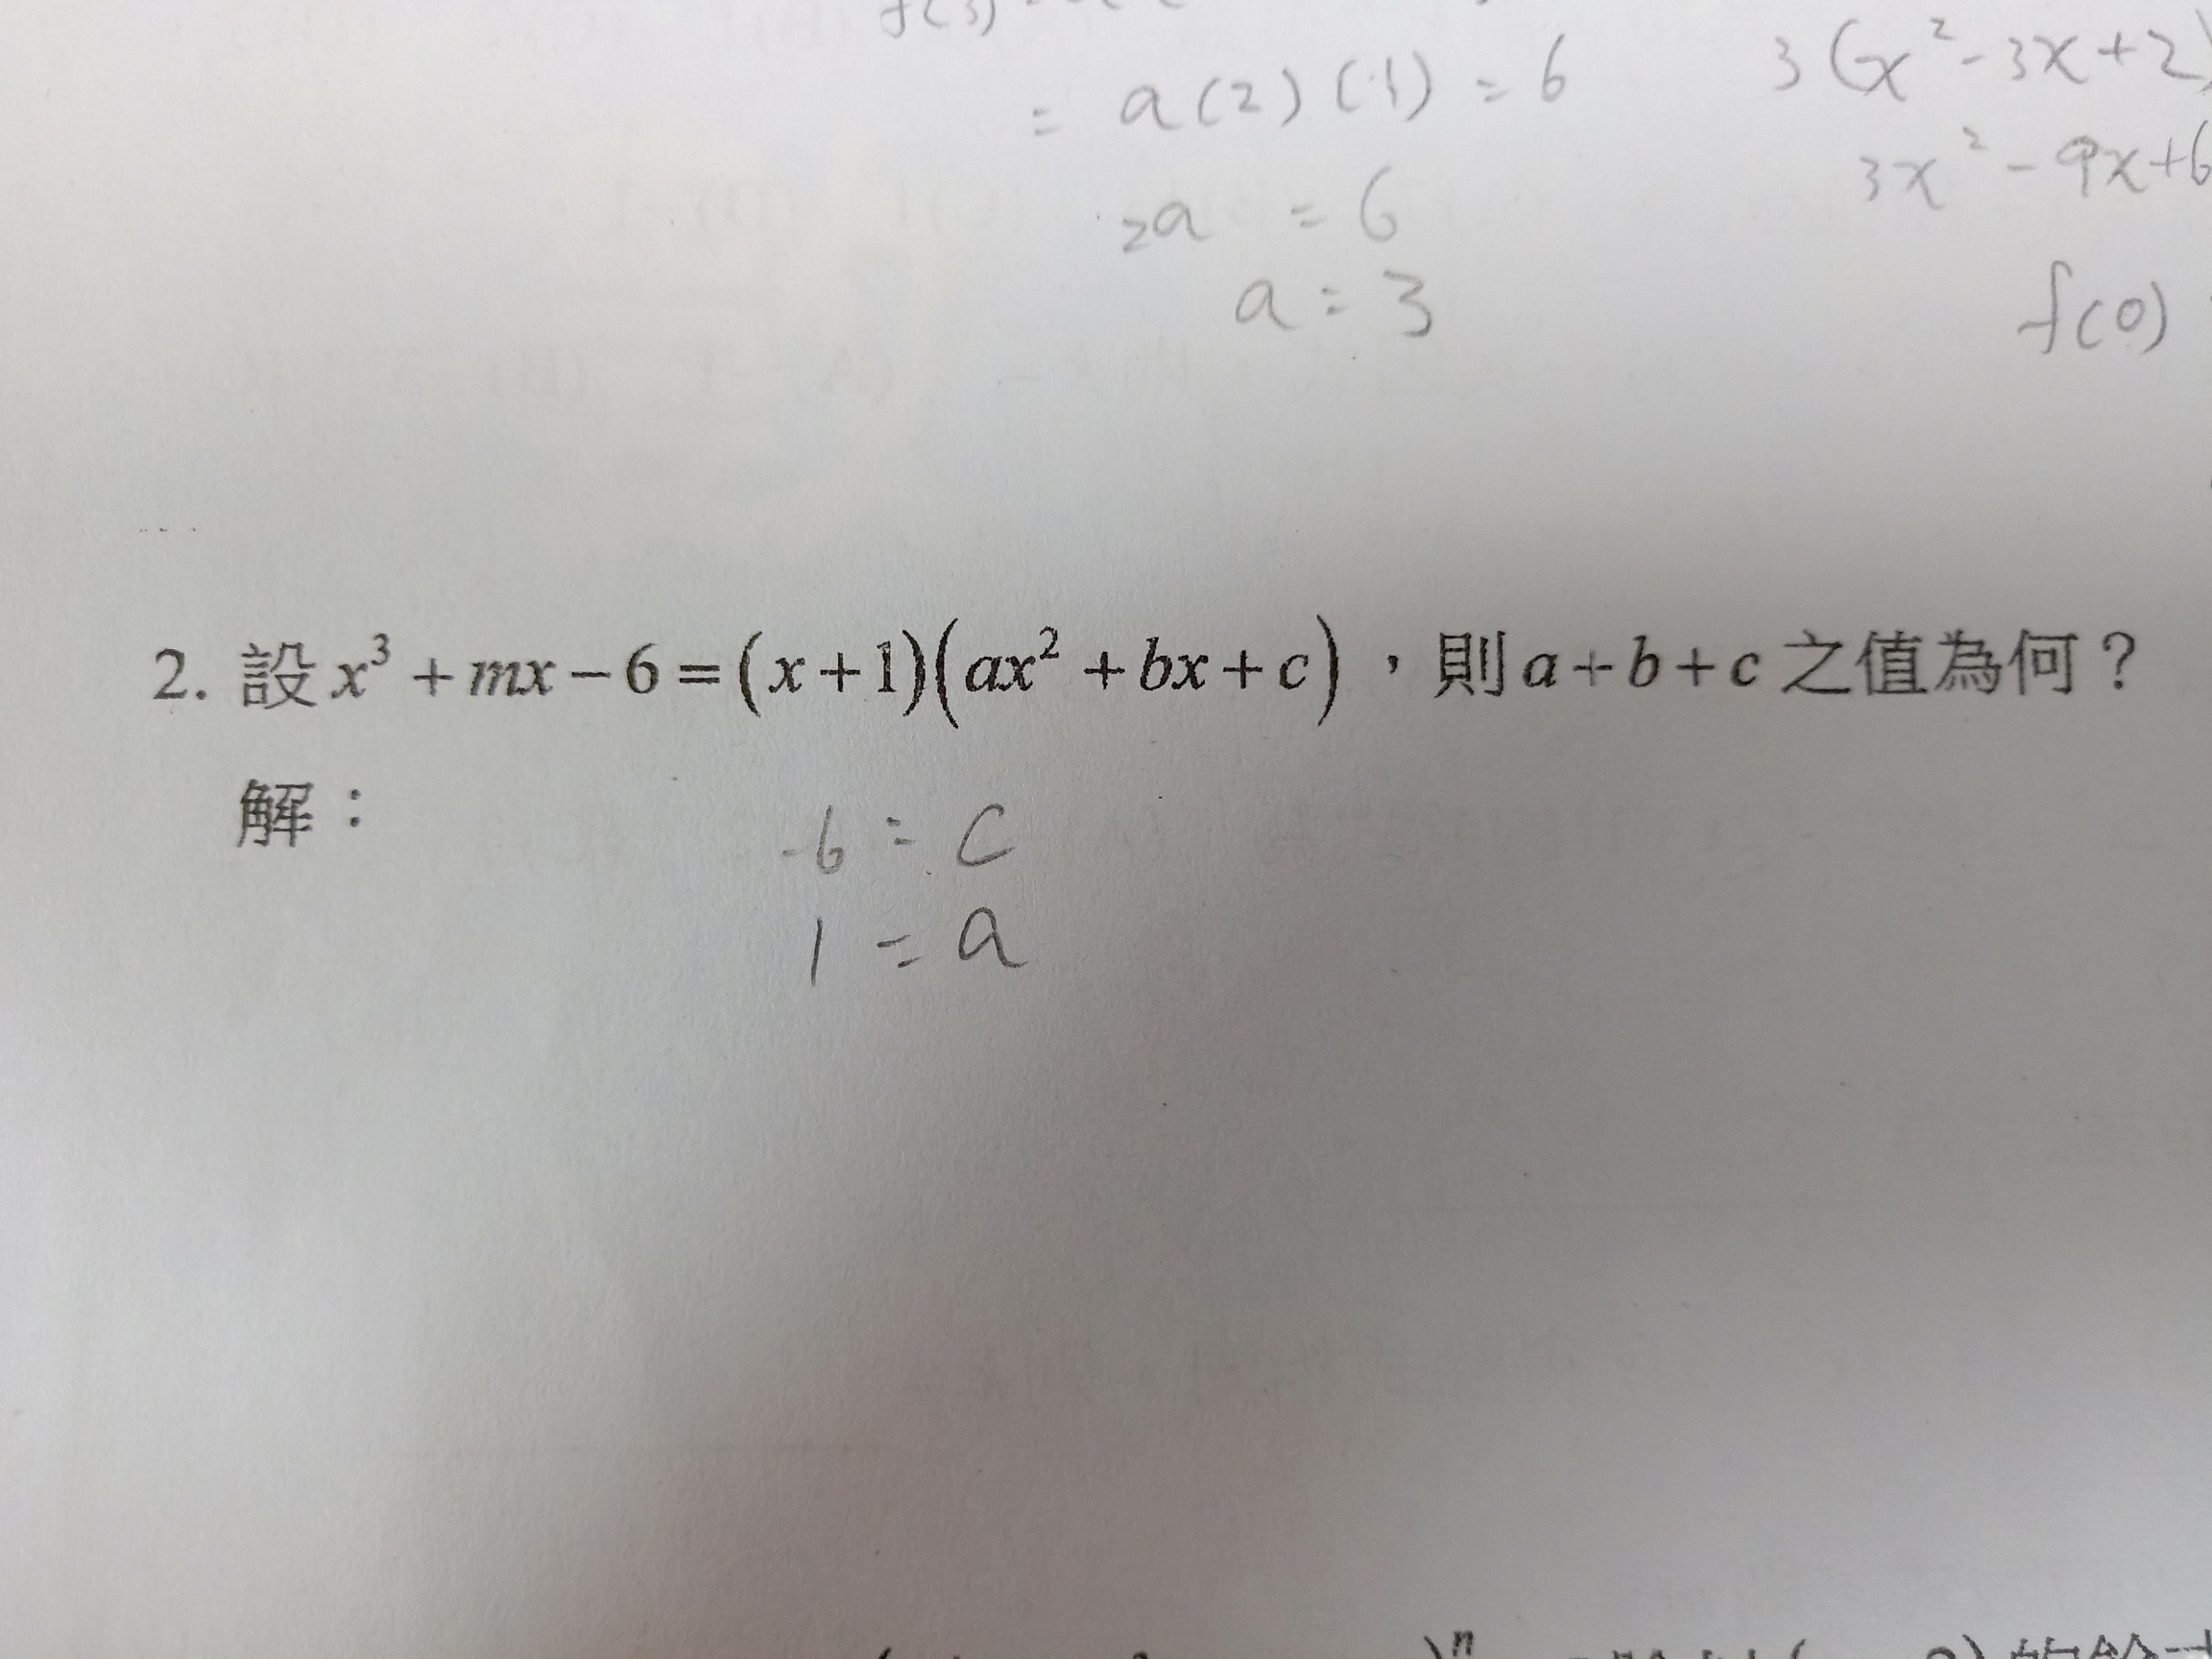 f(3)
= a(2)(1) = 6
2a = 6
a = 3
3(x² - 3x + 2)
3x² - 9x + 6
f(0)
2. 設 x³ + mx − 6 = (x + 1)(ax² + bx + c)，則 a + b + c 之值為何？
解：
-6 = c
1 = a